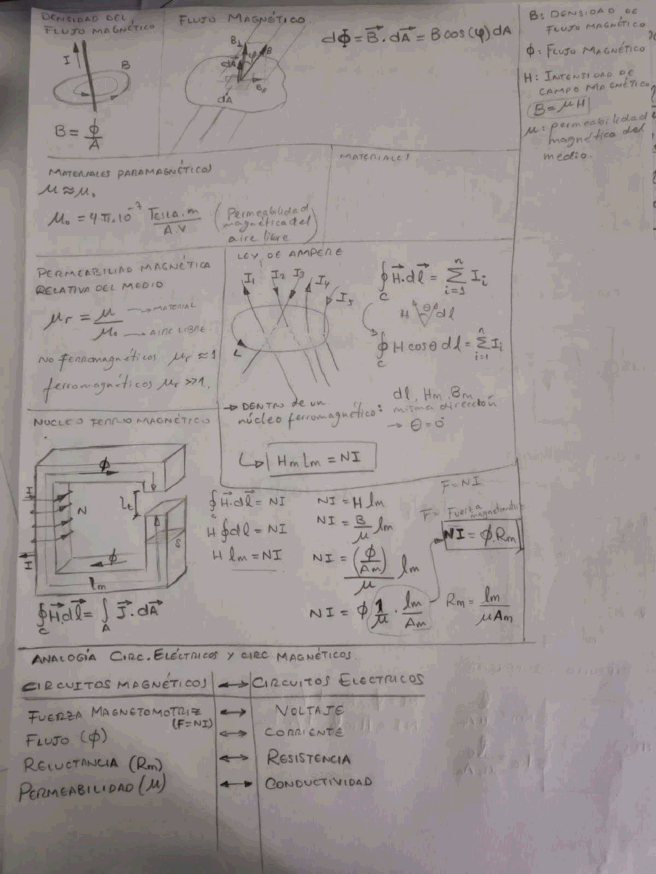 DENSIDAD DEL
FLUJO MAGNÉTICO
I
B
B = ϕ/A
FLUJO MAGNÉTICO
B⊥
B
φ
dA
dA
dΦ = B⃗ . dA⃗ = B cos(φ) dA
B: DENSIDAD DE
FLUJO MAGNÉTICO
ϕ: FLUJO MAGNÉTICO
H: INTENSIDAD DE
CAMPO MAGNÉTICO
B = μH
μ: permeabilidad
magnética del
medio.
MATERIALES PARAMAGNÉTICOS
μ ≈ μ₀
μ₀ = 4π.10⁻⁷ Tesla.m/A.V (Permeabilidad
magnética del
aire libre)
MATERIALES
PERMEABILIDAD MAGNÉTICA
RELATIVA DEL MEDIO
μr = μ/μ₀ → MATERIAL
→ AIRE LIBRE
No ferromagnéticos μr ≈ 1
ferromagnéticos μr >>1.
LEY DE AMPERE
I₁ I₂ I₃ I₄ I₅
∮c H⃗.dl⃗ = Σ i=1 n Ii
H θ dl
∮c H cosθ dl = Σ i=1 n Ii
→ DENTRO DE UN
núcleo ferromagnético:
dl, Hm, Bm
misma dirección
→ θ = 0°
↳ Hm lm = NI
NUCLEO FERROMAGNÉTICO
ϕ
H
N
S
ϕ
H
lm
∮c H⃗dl⃗ = ∫A J⃗.dA⃗
∮c H⃗.dl⃗ = NI
H ∮dl = NI
H lm = NI
NI = H lm
NI = B/μ lm
NI = (ϕ/Am)/μ lm
NI = ϕ 1/μ . lm/Am
F = NI
F = Fuerza
NI = ϕ.Rm
Rm = lm/μAm
ANALOGÍA CIRC. ELÉCTRICOS Y CIRC MAGNÉTICOS
CIRCUITOS MAGNÉTICOS ↔ CIRCUITOS ELECTRICOS
FUERZA MAGNETOMOTRIZ (F=NI) ↔ VOLTAJE
FLUJO (ϕ) ↔ CORRIENTE
RELUCTANCIA (Rm) ↔ RESISTENCIA
PERMEABILIDAD (μ) ↔ CONDUCTIVIDAD